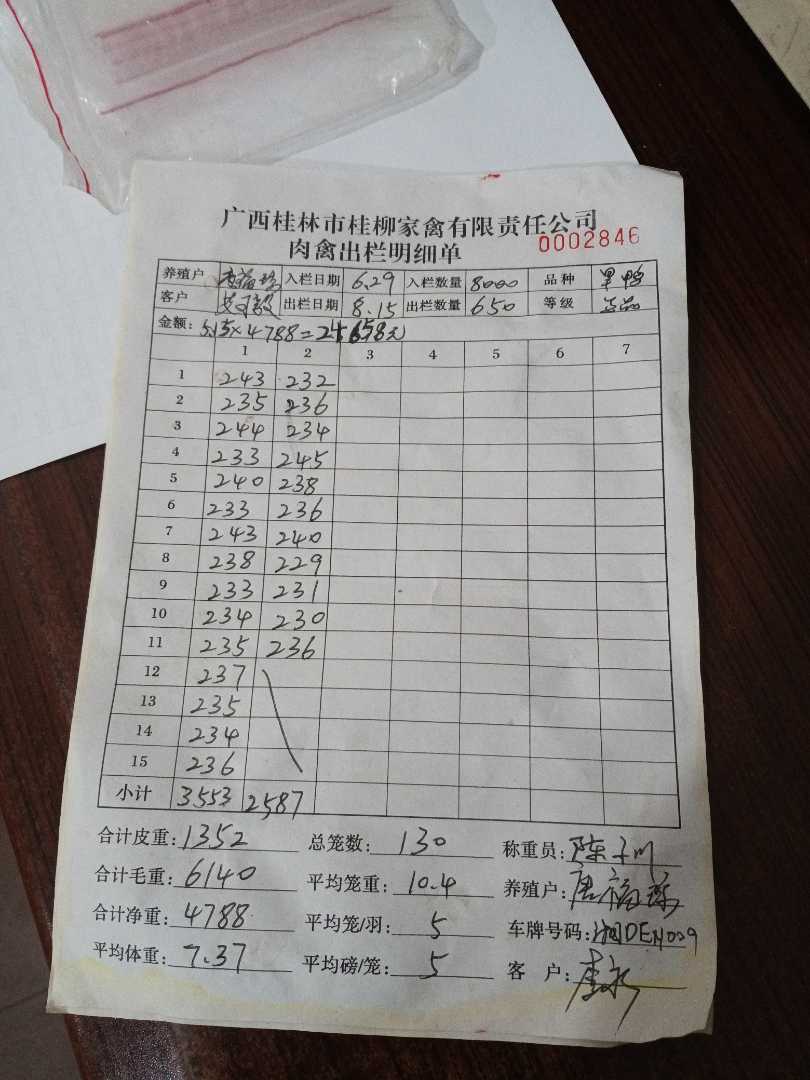 广西桂林市桂柳家禽有限责任公司
肉禽出栏明细单 0002846
养殖户 唐福珍 入栏日期 6.29 入栏数量 8000 品种 黑鸭
客户 出栏日期 8.15 出栏数量 650 等级 正品
金额: 5.15×4788=24658元
1 2 3 4 5 6 7
1 243 232
2 235 236
3 244 234
4 233 245
5 240 238
6 233 236
7 243 240
8 238 229
9 233 231
10 234 230
11 235 236
12 237
13 235
14 234
15 236
小计 3553 2587
合计皮重: 1352 总笼数: 130 称重员: 陈子川
合计毛重: 6140 平均笼重: 10.4 养殖户: 唐福珍
合计净重: 4788 平均笼/羽: 5 车牌号码: 湘DEN009
平均体重: 7.37 平均磅/笼: 5 客户: